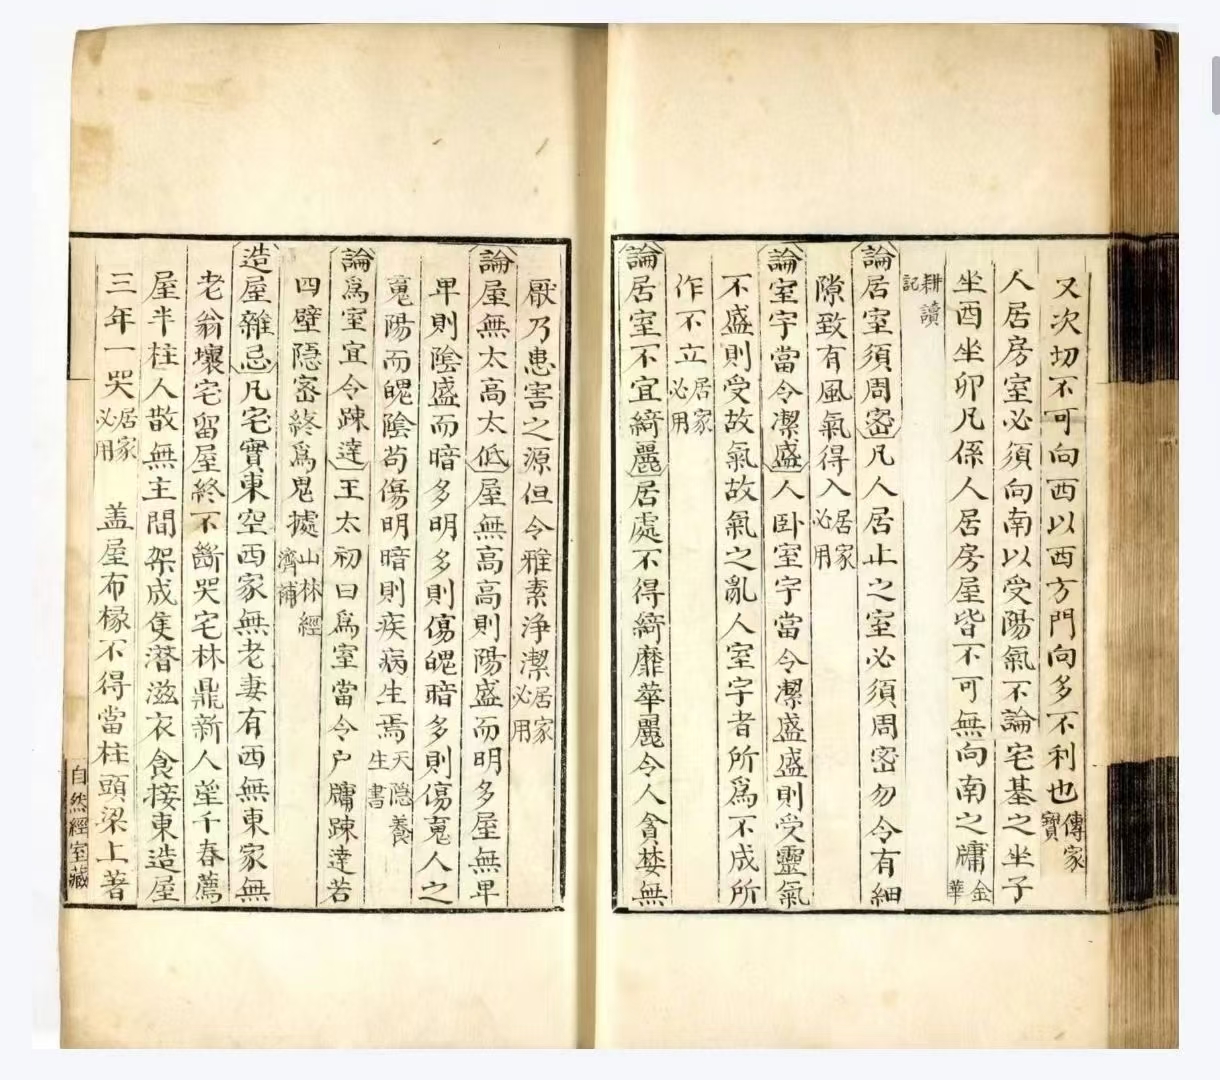 又次切不可向西以西方門向多不利也傳家寶
人居房室必須向南以受陽氣不論宅基之坐子
坐酉坐卯凡係人居房屋皆不可無向南之牗金華
耕讀記
論居室須周密凡人居止之室必須周密勿令有細
隙致有風氣得入居家必用
論室宇當令潔盛人卧室宇當令潔盛盛則受靈氣
不盛則受故氣故氣之亂人室宇者所爲不成所
作不立居家必用
論居室不宜綺麗居處不得綺靡華麗令人貪婪無
厭乃患害之源但令雅素浄潔居家必用
論屋無太高太低屋無高高則陽盛而明多屋無卑
卑則陰盛而暗多明多則傷魄暗多則傷䰟人之
䰟陽而魄陰苟傷明暗則疾病生焉天隠養生書
論爲室宜令疎達王太初曰爲室當令户牗疎達若
四壁隠密終爲鬼據山林經濟補
造屋雜忌凡宅實東空西家無老妻有西無東家無
老翁壞宅留屋終不斷哭宅林鼎新人朢千春薦
屋半柱人散無主間架成隻潛滋衣食接東造屋
三年一哭居家必用 盖屋布椽不得當柱頭梁上著
自然經室藏